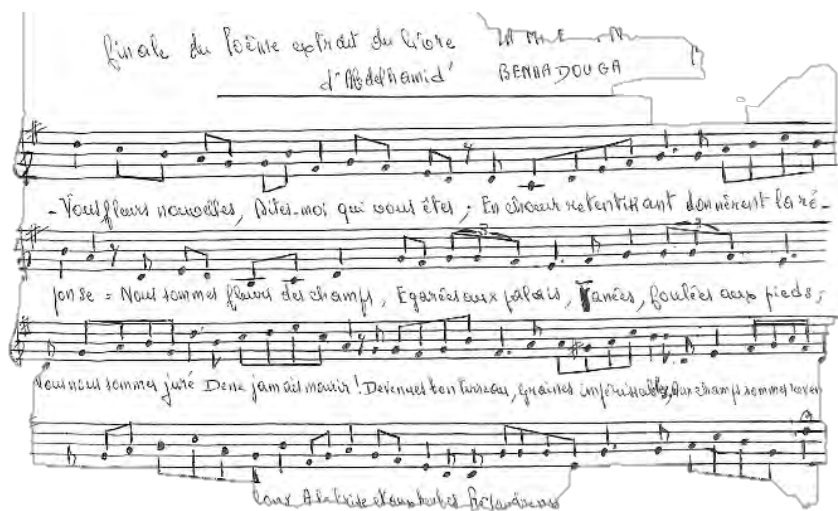 finale du Poème extrait du livre
d'Abdelhamid BENHADOUGA
- Vous fleurs nouvelles, Dites-moi qui vous êtes ; En chœur retentissant donnèrent la ré-
ponse = Nous sommes fleurs des champs, Egarées aux palais, Fanées, foulées aux pieds ;
Nous nous sommes juré De ne jamais mourir ! Devenues bon terreau, graines impérissables, Aux champs sommes
A la brise et aux